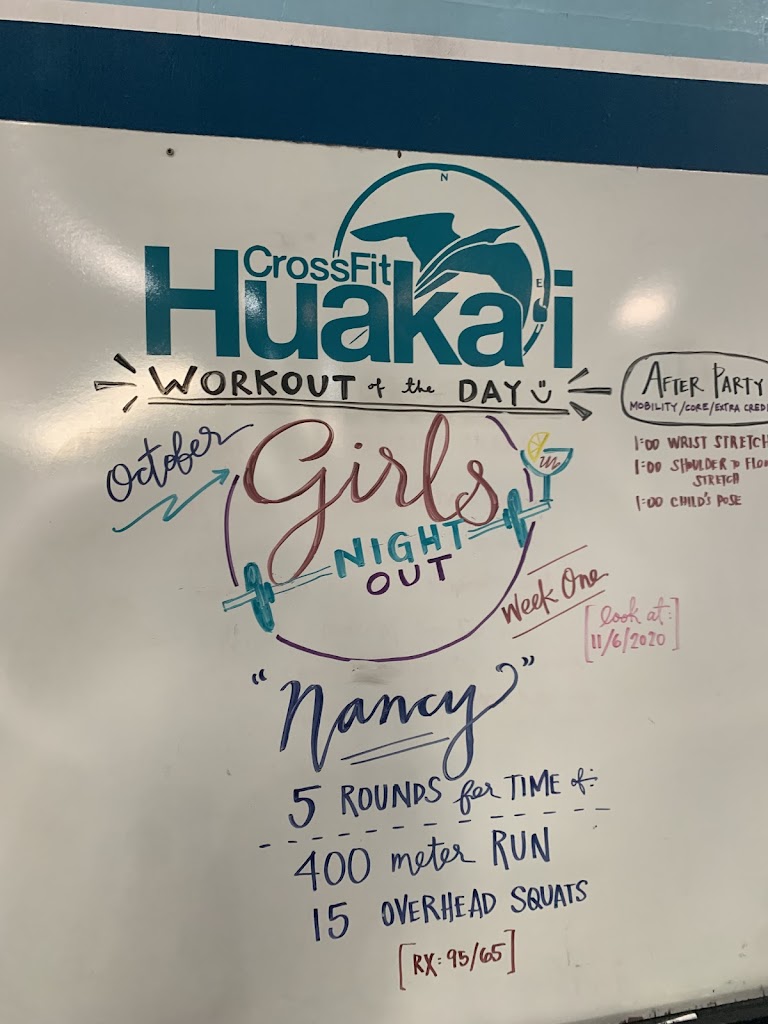 N
CrossFit
Huaka'i
E
WORKOUT of the DAY
October
Girls
NIGHT
OUT
Week One
[look at:
11/6/2020]
"Nancy"
5 ROUNDS for TIME of:
400 meter RUN
15 OVERHEAD SQUATS
[RX: 95/65]
AFTER PARTY
MOBILITY/CORE/EXTRA CREDI
1:00 WRIST STRETCH
1:00 SHOULDER to FLO
STRETCH
1:00 CHILD'S POSE